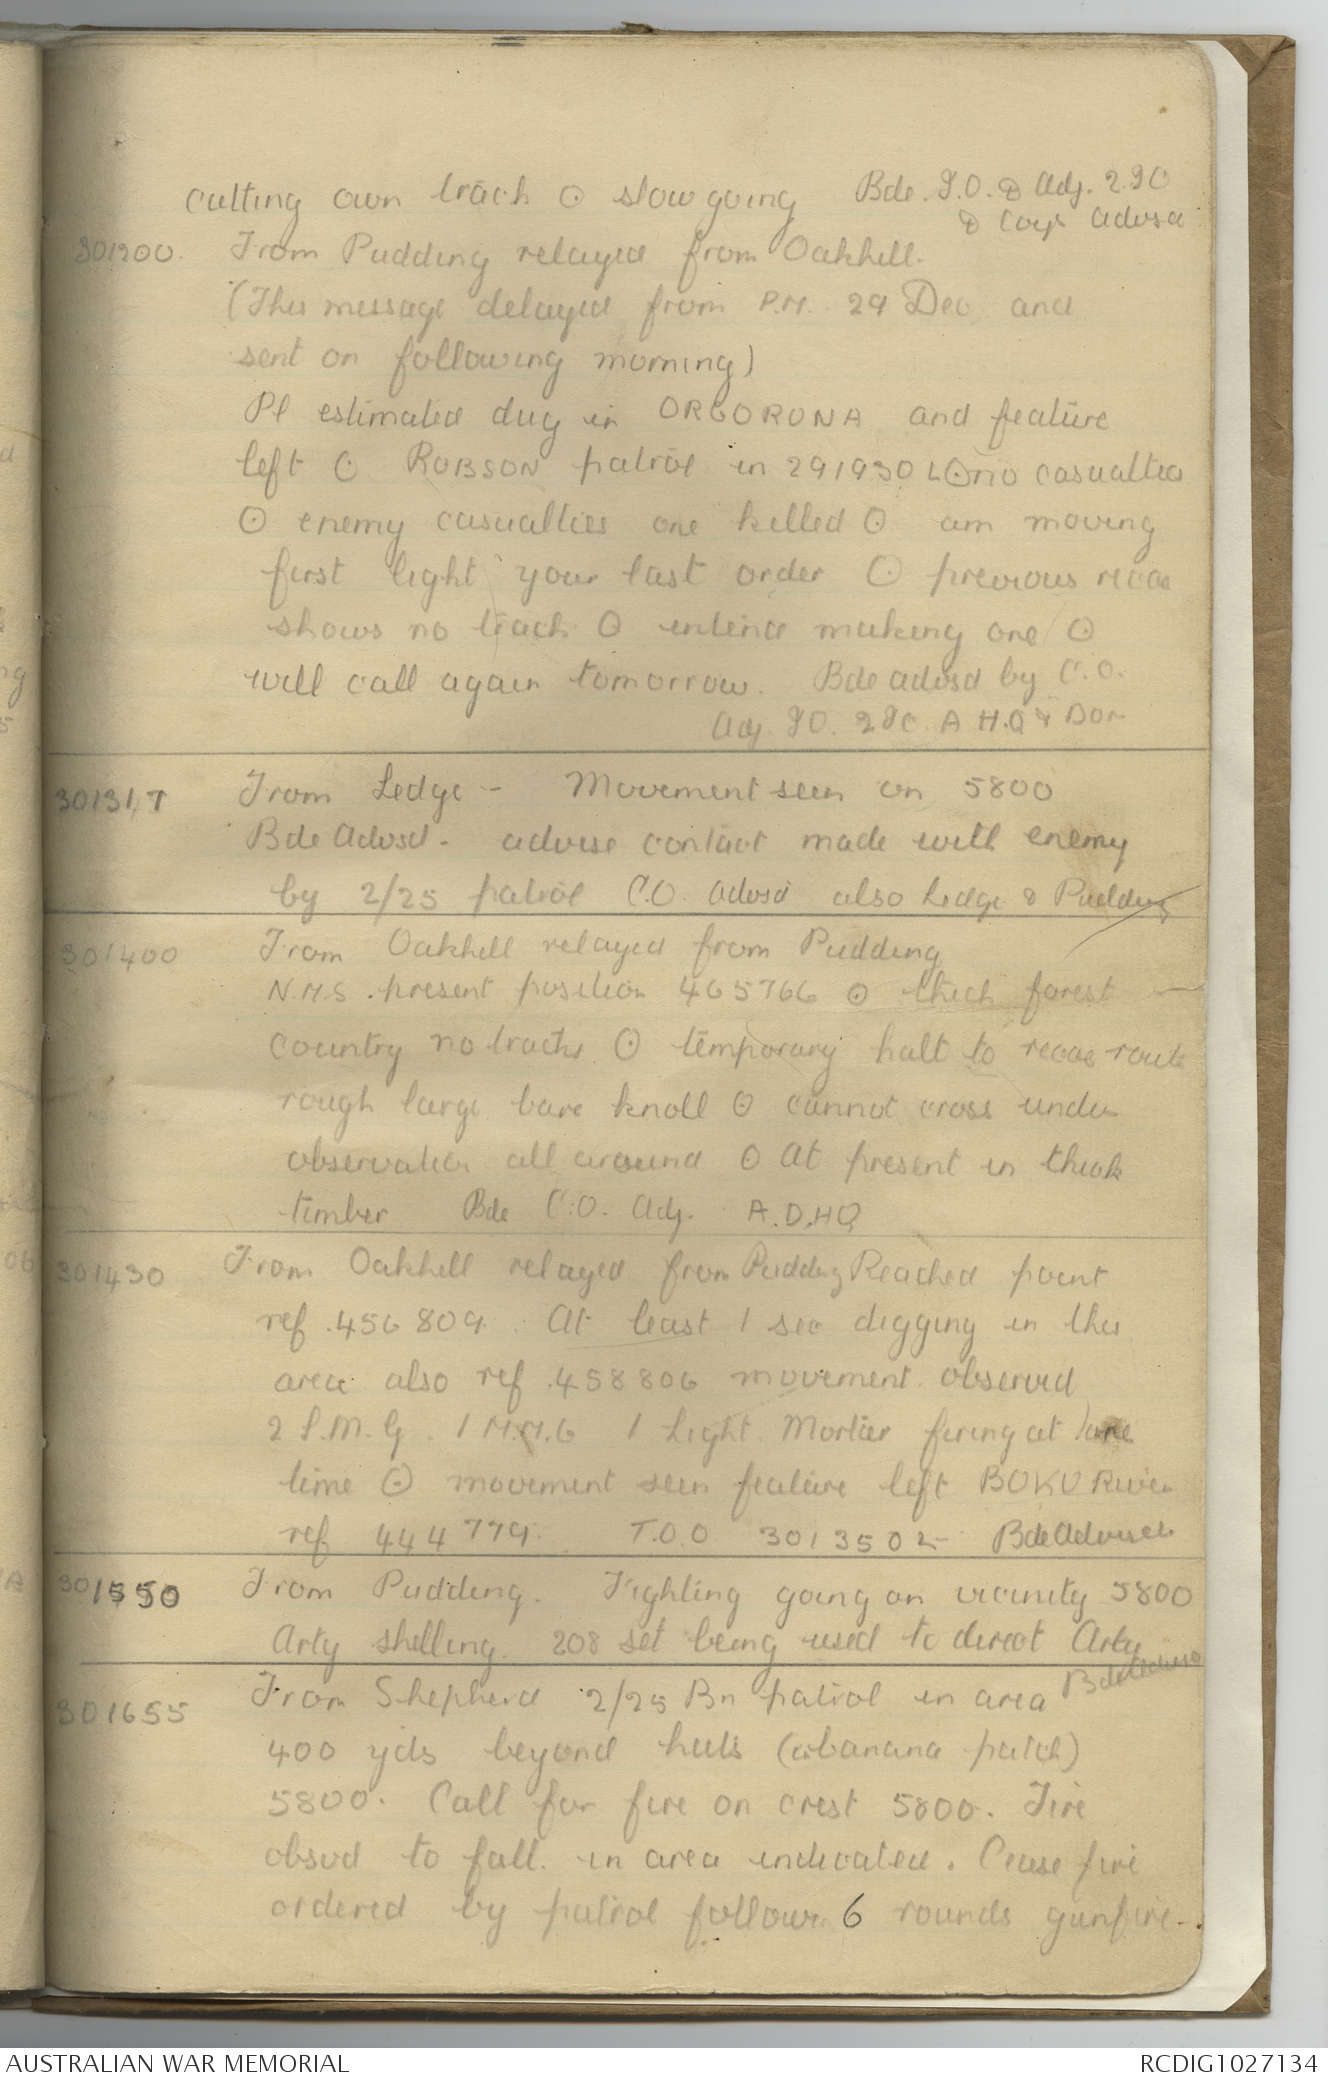 cutting own track ⊙ slow going Bde. I.O. & Adj. 2.IO
& Coys advsd
301200. From Pudding relayed from Oakhill.
(This message delayed from P.M. 29 Dec and
sent on following morning)
Pl estimated dug in ORGORUNA and feature
left ⊙ ROBSON patrol in 291930 L ⊙ no casualties
⊙ enemy casualties one killed ⊙ am moving
first light your last order ⊙ previous recce
shows no track ⊙ intend making one ⊙
will call again tomorrow. Bde advsd by C.O.
Adj. IO. 2IC. A H.Q & Don
301317 From Ledge - Movement seen on 5800
Bde Advsd - advise contact made with enemy
by 2/25 patrol C.O. advsd also Ledge & Pudding
301400 From Oakhill relayed from Pudding
N.M.S. present position 465766 ⊙ thick forest
country no tracks ⊙ temporary halt to recce route
rough large bare knoll ⊙ cannot cross under
observation all around ⊙ At present in thick
timber Bde C.O. Adj. A.D.HQ
301430 From Oakhill relayed from Pudding Reached point
ref .456809. At least 1 sec digging in this
area also ref .458806 movement observed
2 L.M.G. 1 M.M.G 1 Light Mortar firing at
time ⊙ movement seen feature left BOKU River
ref 444779. T.O.O 301350L Bde Advised
301550 From Pudding. Fighting going on vicinity 5800
Arty shelling. 208 set being used to direct Arty
Bde Advsd
301655 From Shepherd 2/25 Bn patrol in area
400 yds beyond huts (abanana patch)
5800. Call for fire on crest 5800. Fire
obsvd to fall in area indicated. Cease fire
ordered by patrol follow 6 rounds gunfire.
AUSTRALIAN WAR MEMORIAL RCDIG1027134